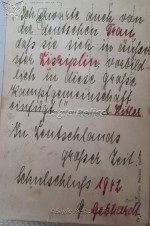 Ich erwarte auch von
der deutschen Frau,
daß sie sich in äußer-
ster Disziplin vorbild-
lich in diese große
Kampfgemeinschaft
einfügt!" A. Hitler
In Deutschlands
großer Zeit!
Schulschluß 1942
Gebhardt